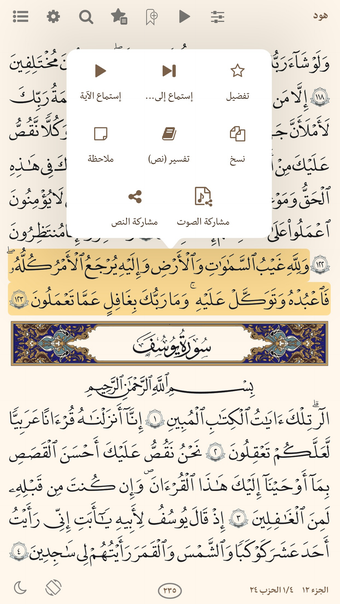 هود
وَلَوْ شَآءَ رَبُّ
مُخْتَلِفِينَ
١١٨ إِلَّا مَن
مَةُ رَبِّكَ
لَأَمْلَأَنَّ جَ
وَكُلًّا نَّقُصُّ
عَلَيْكَ مِنْ
كَ فِى هَـٰذِهِ
ٱلْحَقُّ وَمَوْ
لَا يُؤْمِنُونَ
ٱعْمَلُوا۟ عَلَىٰ
مُنتَظِرُونَ
تفضيل
إستماع إلى...
إستماع الآية
نسخ
تفسير (نص)
ملاحظة
مشاركة الصوت
مشاركة النص
١٢٢ وَلِلَّهِ غَيْبُ ٱلسَّمَـٰوَٰتِ وَٱلْأَرْضِ وَإِلَيْهِ يُرْجَعُ ٱلْأَمْرُ كُلُّهُۥ
فَٱعْبُدْهُ وَتَوَكَّلْ عَلَيْهِ ۚ وَمَا رَبُّكَ بِغَـٰفِلٍ عَمَّا تَعْمَلُونَ ١٢٣
سُورَةُ يُوسُفَ
بِسْمِ ٱللَّهِ ٱلرَّحْمَـٰنِ ٱلرَّحِيمِ
الٓر ۚ تِلْكَ ءَايَـٰتُ ٱلْكِتَـٰبِ ٱلْمُبِينِ ١ إِنَّآ أَنزَلْنَـٰهُ قُرْءَٰنًا عَرَبِيًّا
لَّعَلَّكُمْ تَعْقِلُونَ ٢ نَحْنُ نَقُصُّ عَلَيْكَ أَحْسَنَ ٱلْقَصَصِ
بِمَآ أَوْحَيْنَآ إِلَيْكَ هَـٰذَا ٱلْقُرْءَانَ وَإِن كُنتَ مِن قَبْلِهِۦ
لَمِنَ ٱلْغَـٰفِلِينَ ٣ إِذْ قَالَ يُوسُفُ لِأَبِيهِ يَـٰٓأَبَتِ إِنِّى رَأَيْتُ
أَحَدَ عَشَرَ كَوْكَبًا وَٱلشَّمْسَ وَٱلْقَمَرَ رَأَيْتُهُمْ لِى سَـٰجِدِينَ ٤
الجزء ١٢ ١/٤ الحزب ٢٤
٢٣٥